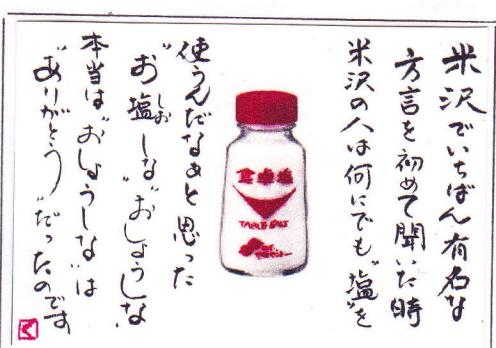 米沢でいちばん有名な
方言を初めて聞いた時
米沢の人は何にでも"塩"を
使うんだなぁと思った
"お塩しな""おしょうしな"
しお
本当は"おしょうしな"は
"ありがとう"だったのです
食卓塩
TABLE SALT